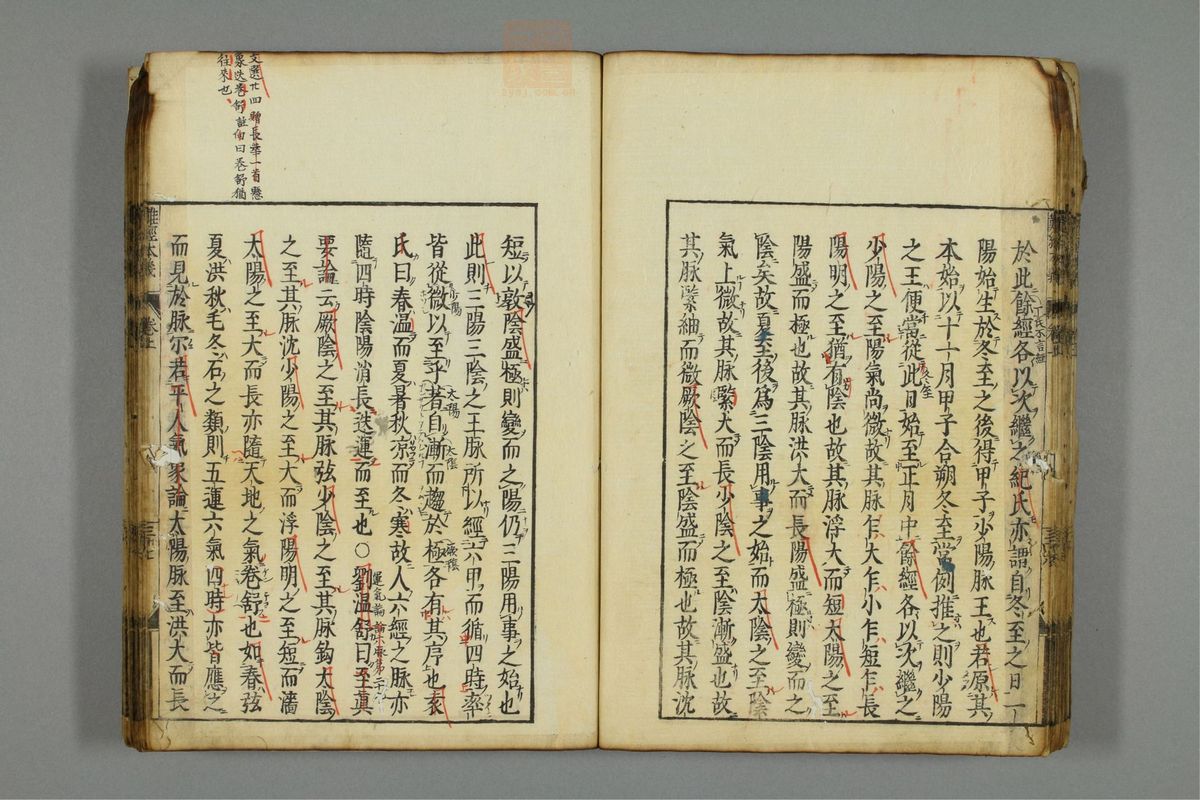 於此餘經各以次繼之紀氏亦謂自冬至之日一
陽始生於冬至之後得甲子少陽脉王也若原其
本始以十一月甲子合朔冬至常例推之則少陽
之王便當從此日始至正月中餘經各以次繼之
少陽之至陽氣尚微故其脉乍大乍小乍短乍長
陽明之至猶有陰也故其脉浮大而短太陽之至
陽盛而極也故其脉洪大而長陽盛極則變而之
陰矣故夏至後爲三陰用事之始而太陰之至陰
氣上微故其脉緊大而長少陰之至陰漸盛也故
其脉緊細而微厥陰之至陰盛而極也故其脉沈
短以敦陰盛極則變而之陽仍三陽用事之始也
此則三陽三陰之王脉所以經六甲而循四時率
皆從微以至乎著自漸而趨於極各有其序也袁
氏曰春温而夏暑秋凉而冬寒故人六經之脉亦
隨四時陰陽消長迭運而至也○劉温舒曰至真
要論云厥陰之至其脉弦少陰之至其脉鈎太陰
之至其脉沈少陽之至大而浮陽明之至短而濇
太陽之至大而長亦隨天地之氣卷舒也如春弦
夏洪秋毛冬石之類則五運六氣四時亦皆應之
而見於脉尔若平人氣象論太陽脉至洪大而長
文選廿四贈長華一首懸
象迭卷舒註向曰卷舒猶
往來也
難經本義
卷上